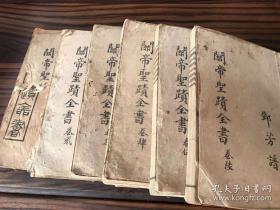 關帝聖蹟全書 卷陸
關帝聖蹟全書 卷
關帝聖蹟全書 卷肆
關帝聖蹟全書
關帝聖蹟全書 卷貳
關帝聖